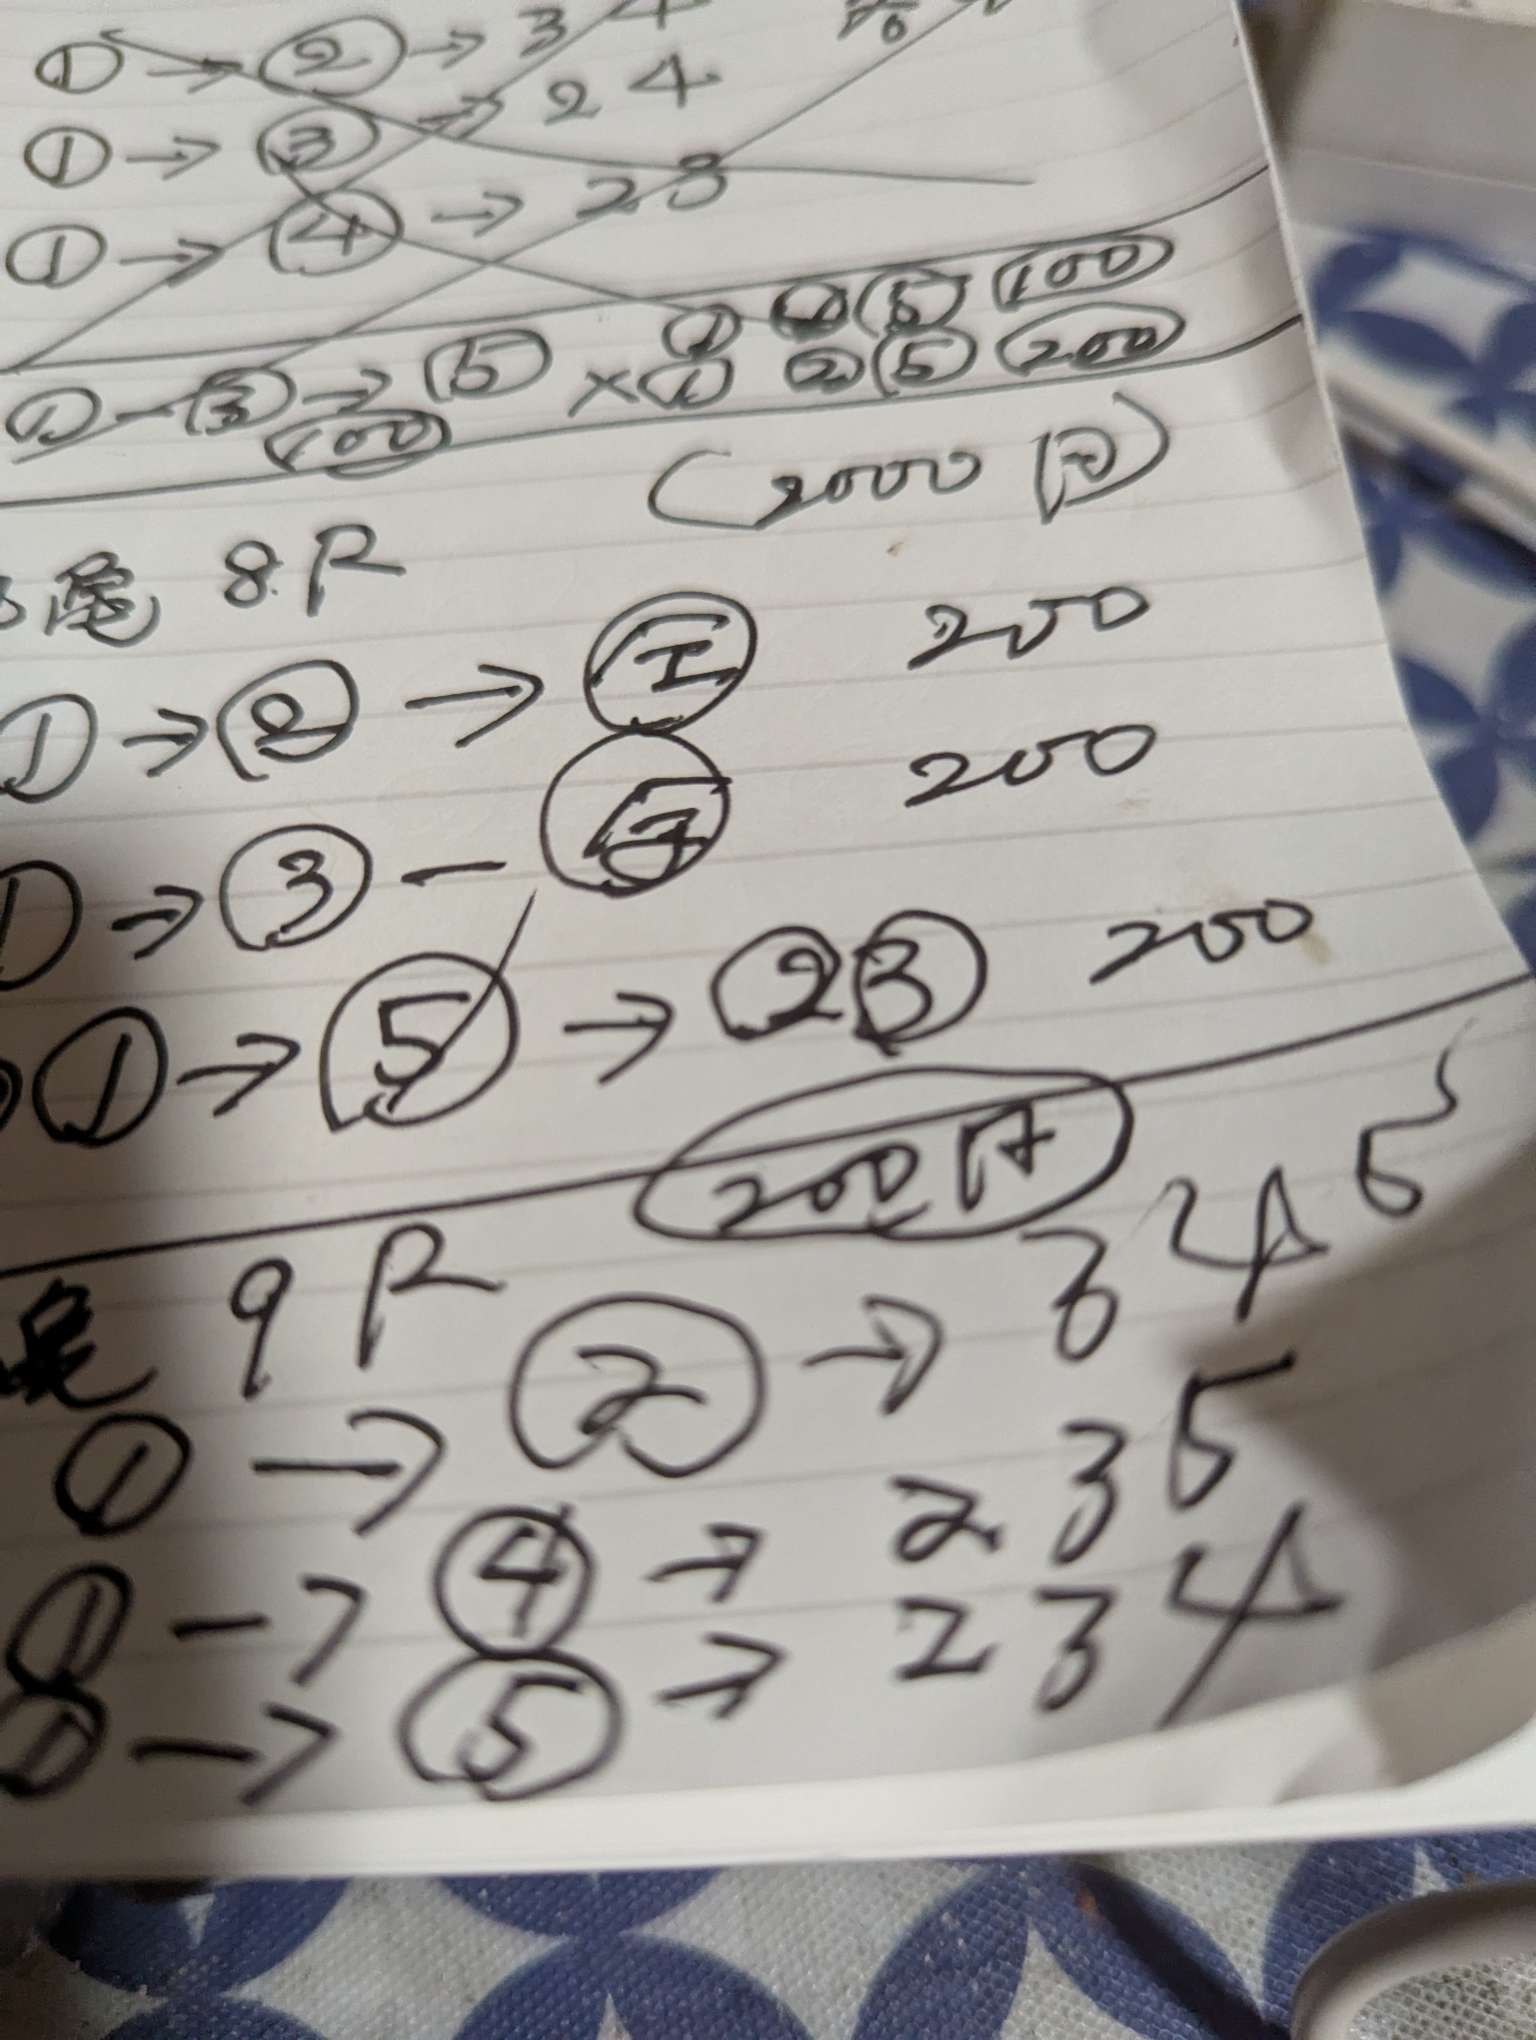 ①→②→3 4
①→③→2 4
①→④→2 3
① ② ⑤ 100
①-③→⑤ ×① ② ⑤ 200
100
(2000円)
尾 8R
①→②→ 200
①→③- 200
①→⑤→②③ 200
200円
尾 9R
①→②→3 4 5
①→④→2 3 5
①→⑤→2 3 4